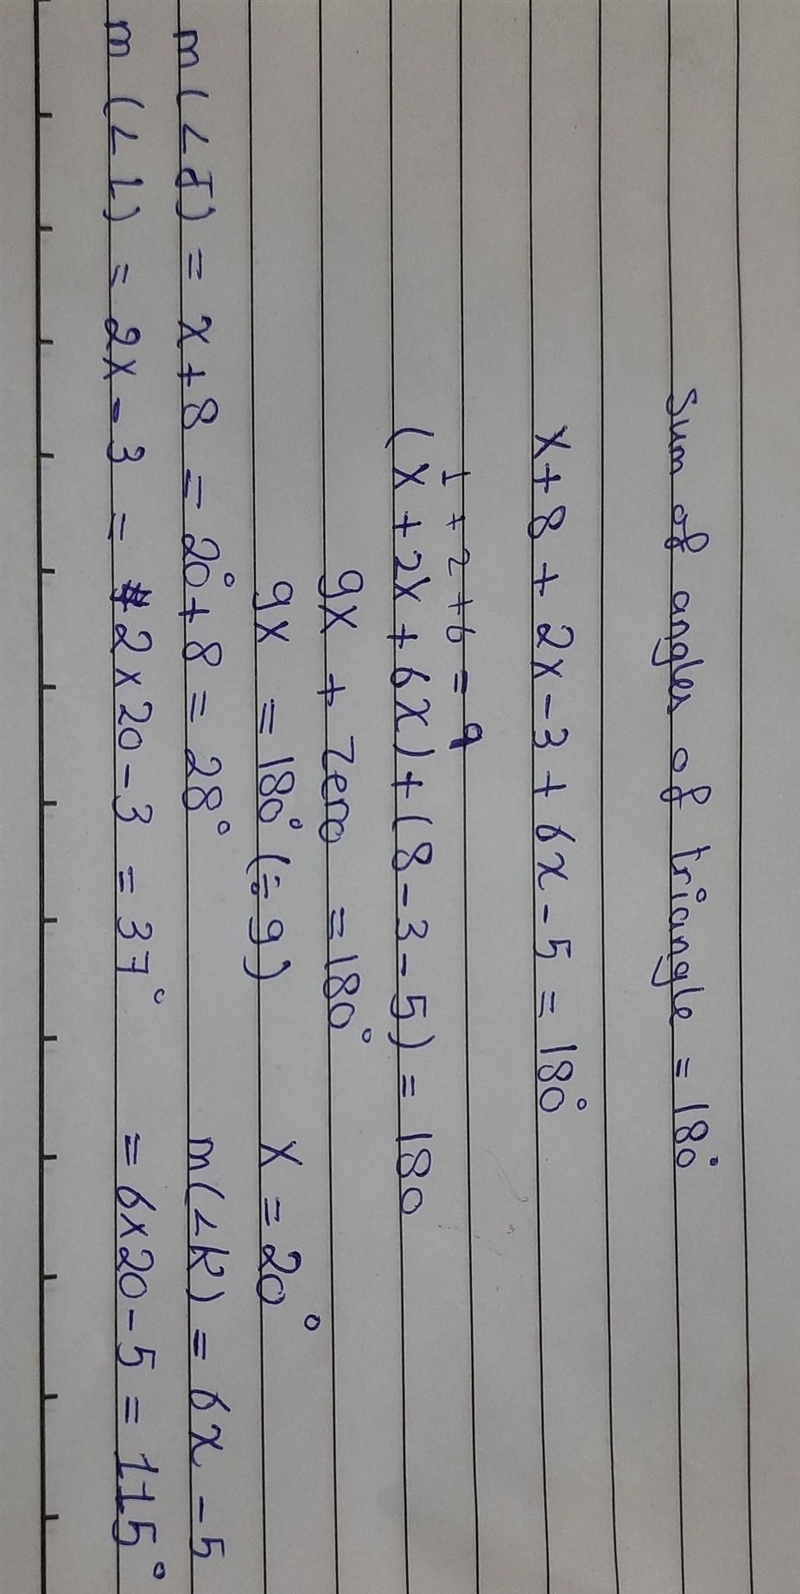 Sum of angles of triangle = 180°
x + 8 + 2x - 3 + 6x - 5 = 180°
1 + 2 + 6 = 9
(x + 2x + 6x) + (8 - 3 - 5) = 180
9x + Zero = 180°
9x = 180° (÷ 9) x = 20°
m(∠J) = x + 8 = 20° + 8 = 28° m(∠K) = 6x - 5
m(∠L) = 2x - 3 = 2 x 20 - 3 = 37° = 6 x 20 - 5 = 115°